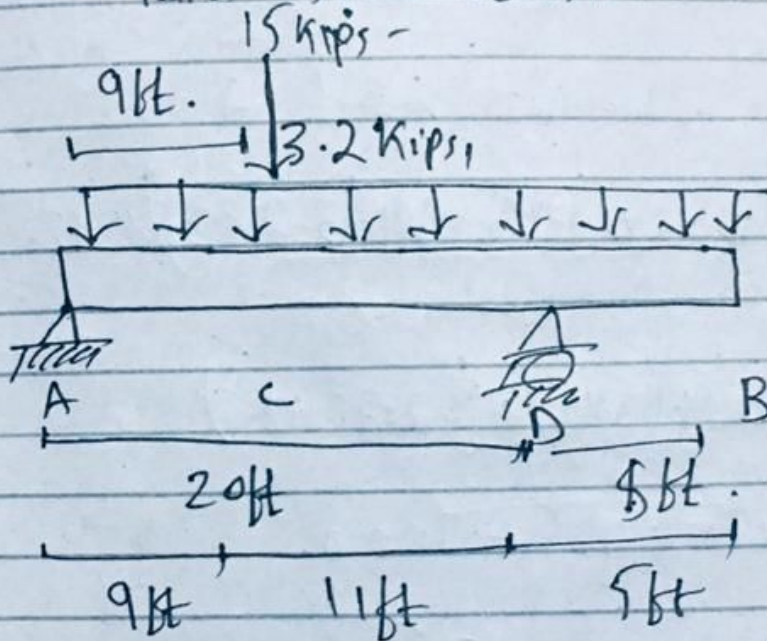 15 Kips -
9ft.
3.2 Kips,
A C D B
20ft 5ft.
9ft 11ft 5ft